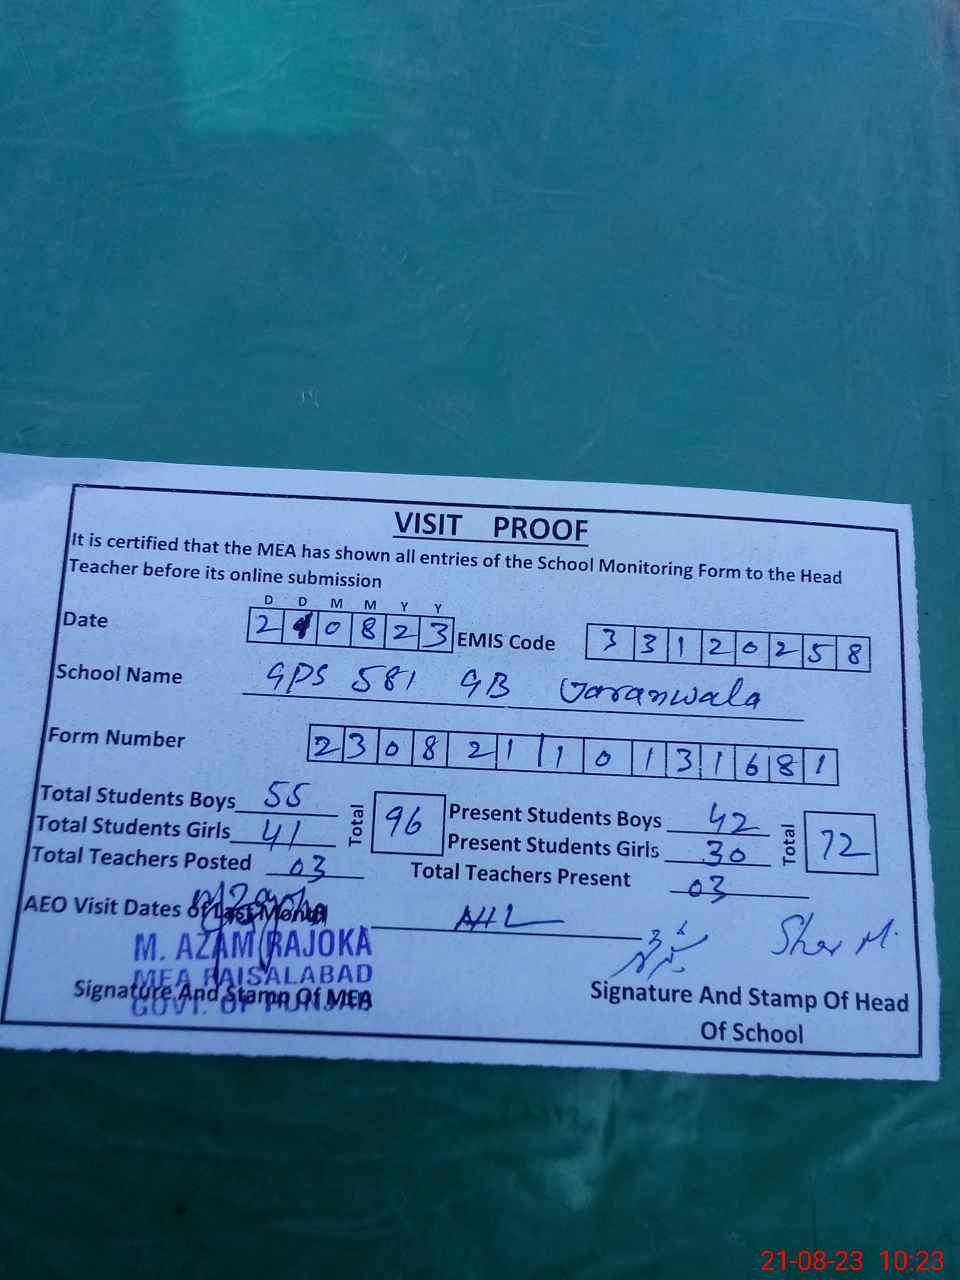 VISIT PROOF
It is certified that the MEA has shown all entries of the School Monitoring Form to the Head
Teacher before its online submission
D D M M Y Y
Date 2 1 0 8 2 3 EMIS Code 3 3 1 2 0 2 5 8
School Name GPS 581 GB
Form Number 2 3 0 8 2 1 1 1 0 1 3 1 6 8 1
Total Students Boys 55 Total 96 Present Students Boys 42 Total 72
Total Students Girls 41 Present Students Girls 30
Total Teachers Posted 03 Total Teachers Present 03
AEO Visit Dates of Last Month
M. AZAM RAJOKA
MEA FAISALABAD
GOVT. OF PUNJAB
Signature And Stamp Of MEA
Sher M.
Signature And Stamp Of Head
Of School
21-08-23 10:23